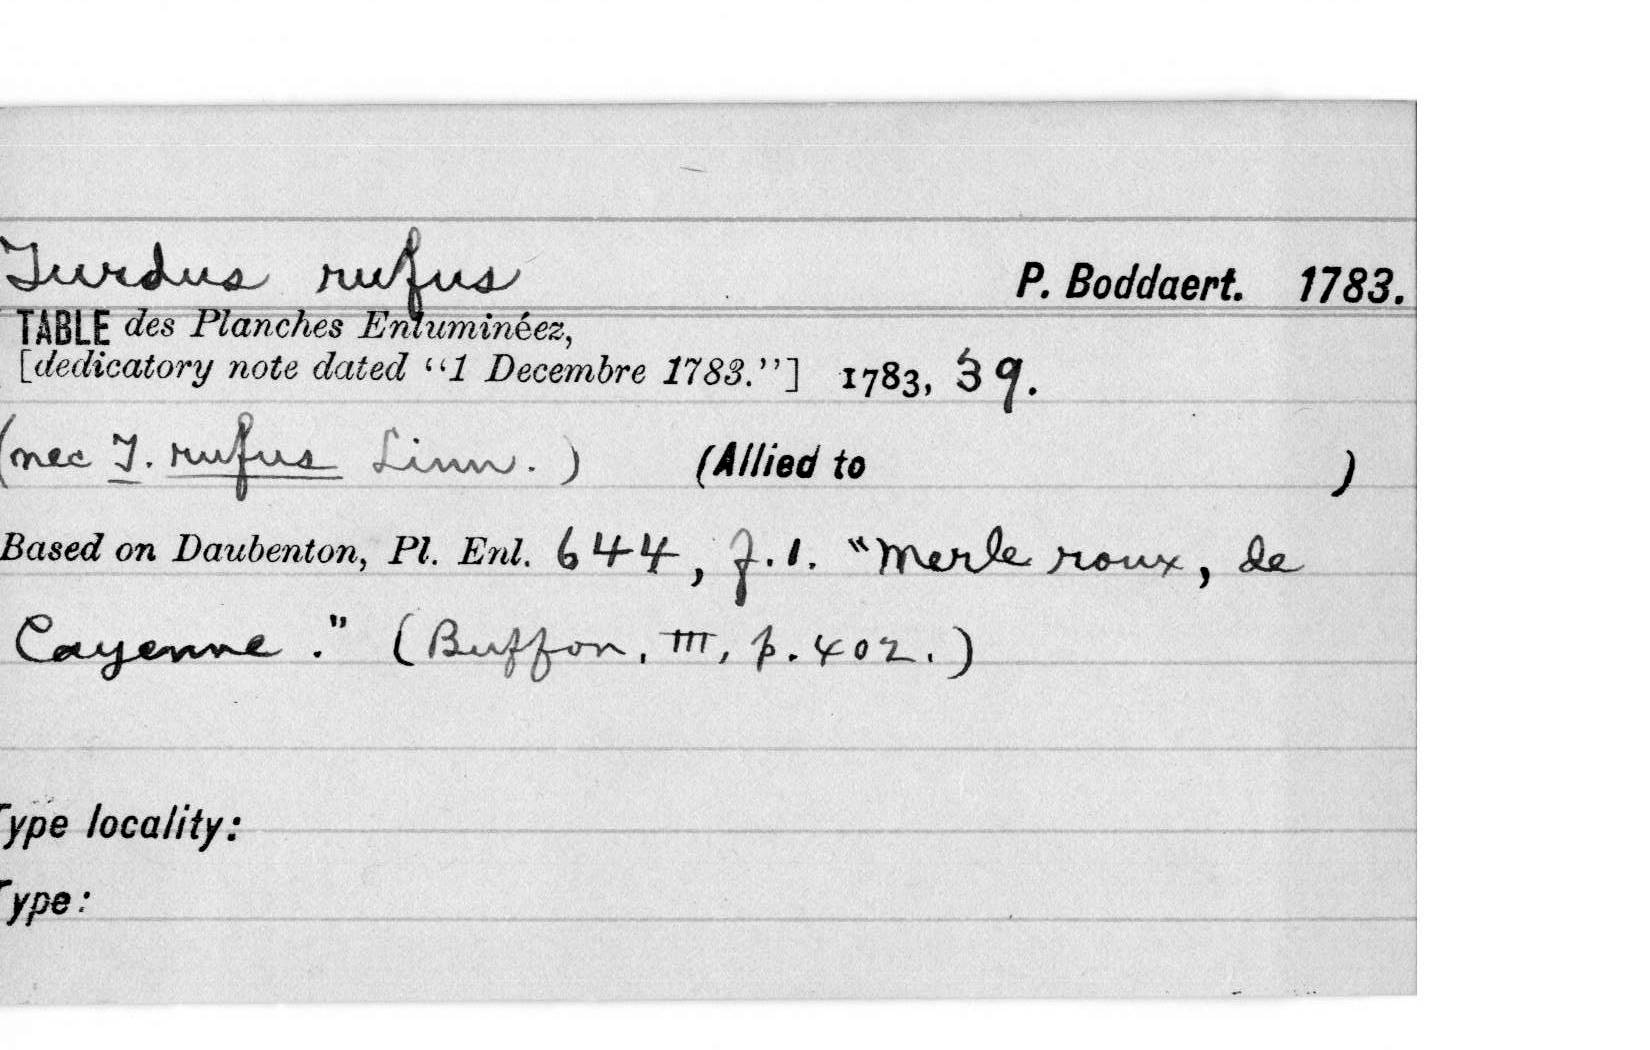 Turdus rufus P. Boddaert. 1783.
TABLE des Planches Enluminéez,
[dedicatory note dated “1 Decembre 1783.”] 1783, 39.
(nec T. rufus Linn.) (Allied to )
Based on Daubenton, Pl. Enl. 644, f.1. "Merle roux, de
Cayenne." (Buffon, III, p. 402.)
Type locality:
Type: